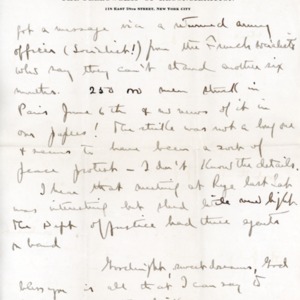 119 EAST 19TH STREET, NEW YORK CITY
got a message via a returned army
officer (Socialist!) from the French socialists
who say they can't stand another six
months. 250 000 men struck in
Paris June 6th & no news of it in
our papers! The strike was not a long one
& seems to have been a sort of
peace protest — I don't know the details.
I hear that meeting at Rye last Sat
was interesting but shed little new light
The Dept of Justice had three agents
on hand
Goodnight, sweet dreams, God
bless you is all that I can say to